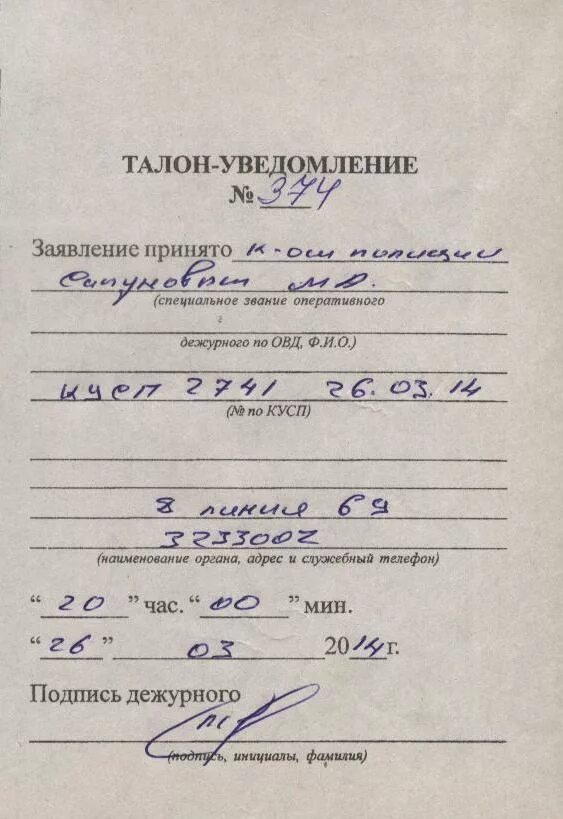 ТАЛОН-УВЕДОМЛЕНИЕ
№ 374
Заявление принято к-ом полиции
М.А.
(специальное звание оперативного
дежурного по ОВД, Ф.И.О.)
КУСП 2741 26.03.14
(№ по КУСП)
8 линия 69
3233002
(наименование органа, адрес и служебный телефон)
“ 20 ” час. “ 00 ” мин.
“ 26 ” 03 2014 г.
Подпись дежурного
(подпись, инициалы, фамилия)